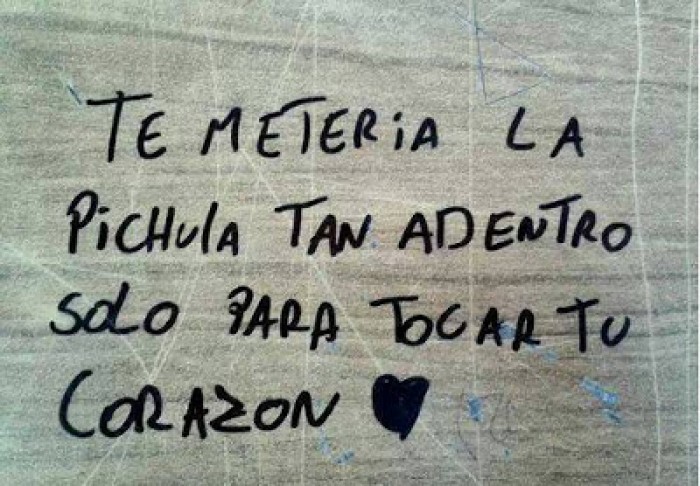 TE METERiA LA
PiCHUlA TAN ADENTRO
SOLO PARA TOCAR TU
CORAZON ♥